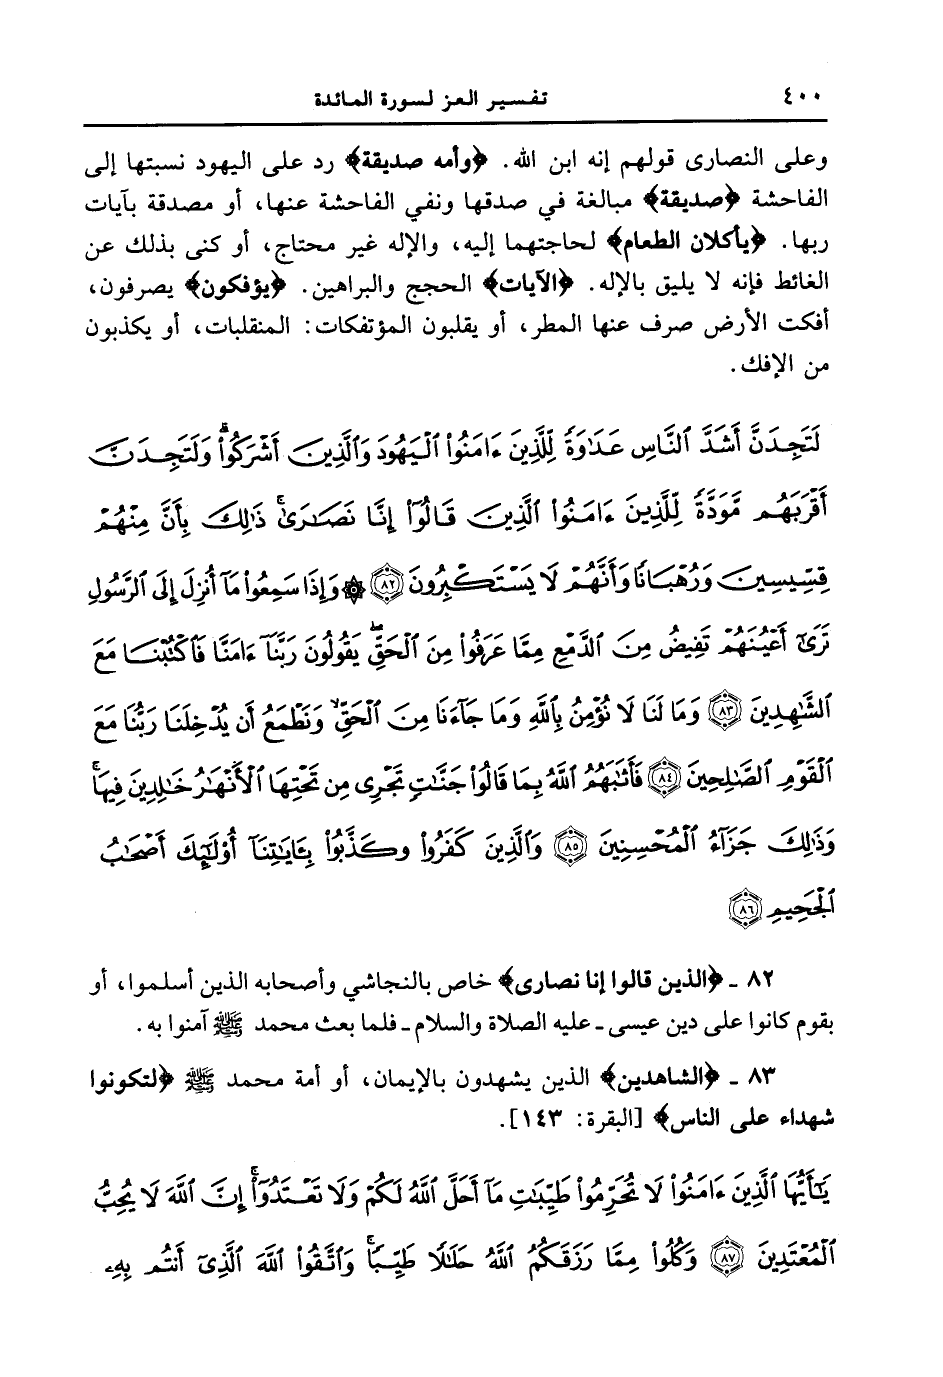 ٤٠٠ تفسير العز لسورة المائدة
وعلى النصارى قولهم إنه ابن الله. ﴿وأمه صديقة﴾ رد على اليهود نسبتها إلى
الفاحشة ﴿صديقة﴾ مبالغة في صدقها ونفي الفاحشة عنها، أو مصدقة بآيات
ربها. ﴿يأكلان الطعام﴾ لحاجتهما إليه، والإله غير محتاج، أو كنى بذلك عن
الغائط فإنه لا يليق بالإله. ﴿الآيات﴾ الحجج والبراهين. ﴿يؤفكون﴾ يصرفون،
أفكت الأرض صرف عنها المطر، أو يقلبون المؤتفكات: المنقلبات، أو يكذبون
من الإفك.
لَتَجِدَنَّ أَشَدَّ ٱلنَّاسِ عَدَٰوَةً لِّلَّذِينَ ءَامَنُوا۟ ٱلْيَهُودَ وَٱلَّذِينَ أَشْرَكُوا۟ ۖ وَلَتَجِدَنَّ
أَقْرَبَهُم مَّوَدَّةً لِّلَّذِينَ ءَامَنُوا۟ ٱلَّذِينَ قَالُوٓا۟ إِنَّا نَصَٰرَىٰ ۚ ذَٰلِكَ بِأَنَّ مِنْهُمْ
قِسِّيسِينَ وَرُهْبَانًا وَأَنَّهُمْ لَا يَسْتَكْبِرُونَ ﴿٨٢﴾ ۞ وَإِذَا سَمِعُوا۟ مَآ أُنزِلَ إِلَى ٱلرَّسُولِ
تَرَىٰٓ أَعْيُنَهُمْ تَفِيضُ مِنَ ٱلدَّمْعِ مِمَّا عَرَفُوا۟ مِنَ ٱلْحَقِّ ۖ يَقُولُونَ رَبَّنَآ ءَامَنَّا فَٱكْتُبْنَا مَعَ
ٱلشَّٰهِدِينَ ﴿٨٣﴾ وَمَا لَنَا لَا نُؤْمِنُ بِٱللَّهِ وَمَا جَآءَنَا مِنَ ٱلْحَقِّ وَنَطْمَعُ أَن يُدْخِلَنَا رَبُّنَا مَعَ
ٱلْقَوْمِ ٱلصَّٰلِحِينَ ﴿٨٤﴾ فَأَثَٰبَهُمُ ٱللَّهُ بِمَا قَالُوا۟ جَنَّٰتٍ تَجْرِى مِن تَحْتِهَا ٱلْأَنْهَٰرُ خَٰلِدِينَ فِيهَا ۚ
وَذَٰلِكَ جَزَآءُ ٱلْمُحْسِنِينَ ﴿٨٥﴾ وَٱلَّذِينَ كَفَرُوا۟ وَكَذَّبُوا۟ بِـَٔايَٰتِنَآ أُو۟لَٰٓئِكَ أَصْحَٰبُ
ٱلْجَحِيمِ ﴿٨٦﴾
٨٢ ـ ﴿الذين قالوا إنا نصارى﴾ خاص بالنجاشي وأصحابه الذين أسلموا، أو
بقوم كانوا على دين عيسى ـ عليه الصلاة والسلام ـ فلما بعث محمد ﷺ آمنوا به.
٨٣ ـ ﴿الشاهدين﴾ الذين يشهدون بالإيمان، أو أمة محمد ﷺ ﴿لتكونوا
شهداء على الناس﴾ [البقرة: ١٤٣].
يَٰٓأَيُّهَا ٱلَّذِينَ ءَامَنُوا۟ لَا تُحَرِّمُوا۟ طَيِّبَٰتِ مَآ أَحَلَّ ٱللَّهُ لَكُمْ وَلَا تَعْتَدُوٓا۟ ۚ إِنَّ ٱللَّهَ لَا يُحِبُّ
ٱلْمُعْتَدِينَ ﴿٨٧﴾ وَكُلُوا۟ مِمَّا رَزَقَكُمُ ٱللَّهُ حَلَٰلًا طَيِّبًا ۚ وَٱتَّقُوا۟ ٱللَّهَ ٱلَّذِىٓ أَنتُم بِهِۦ